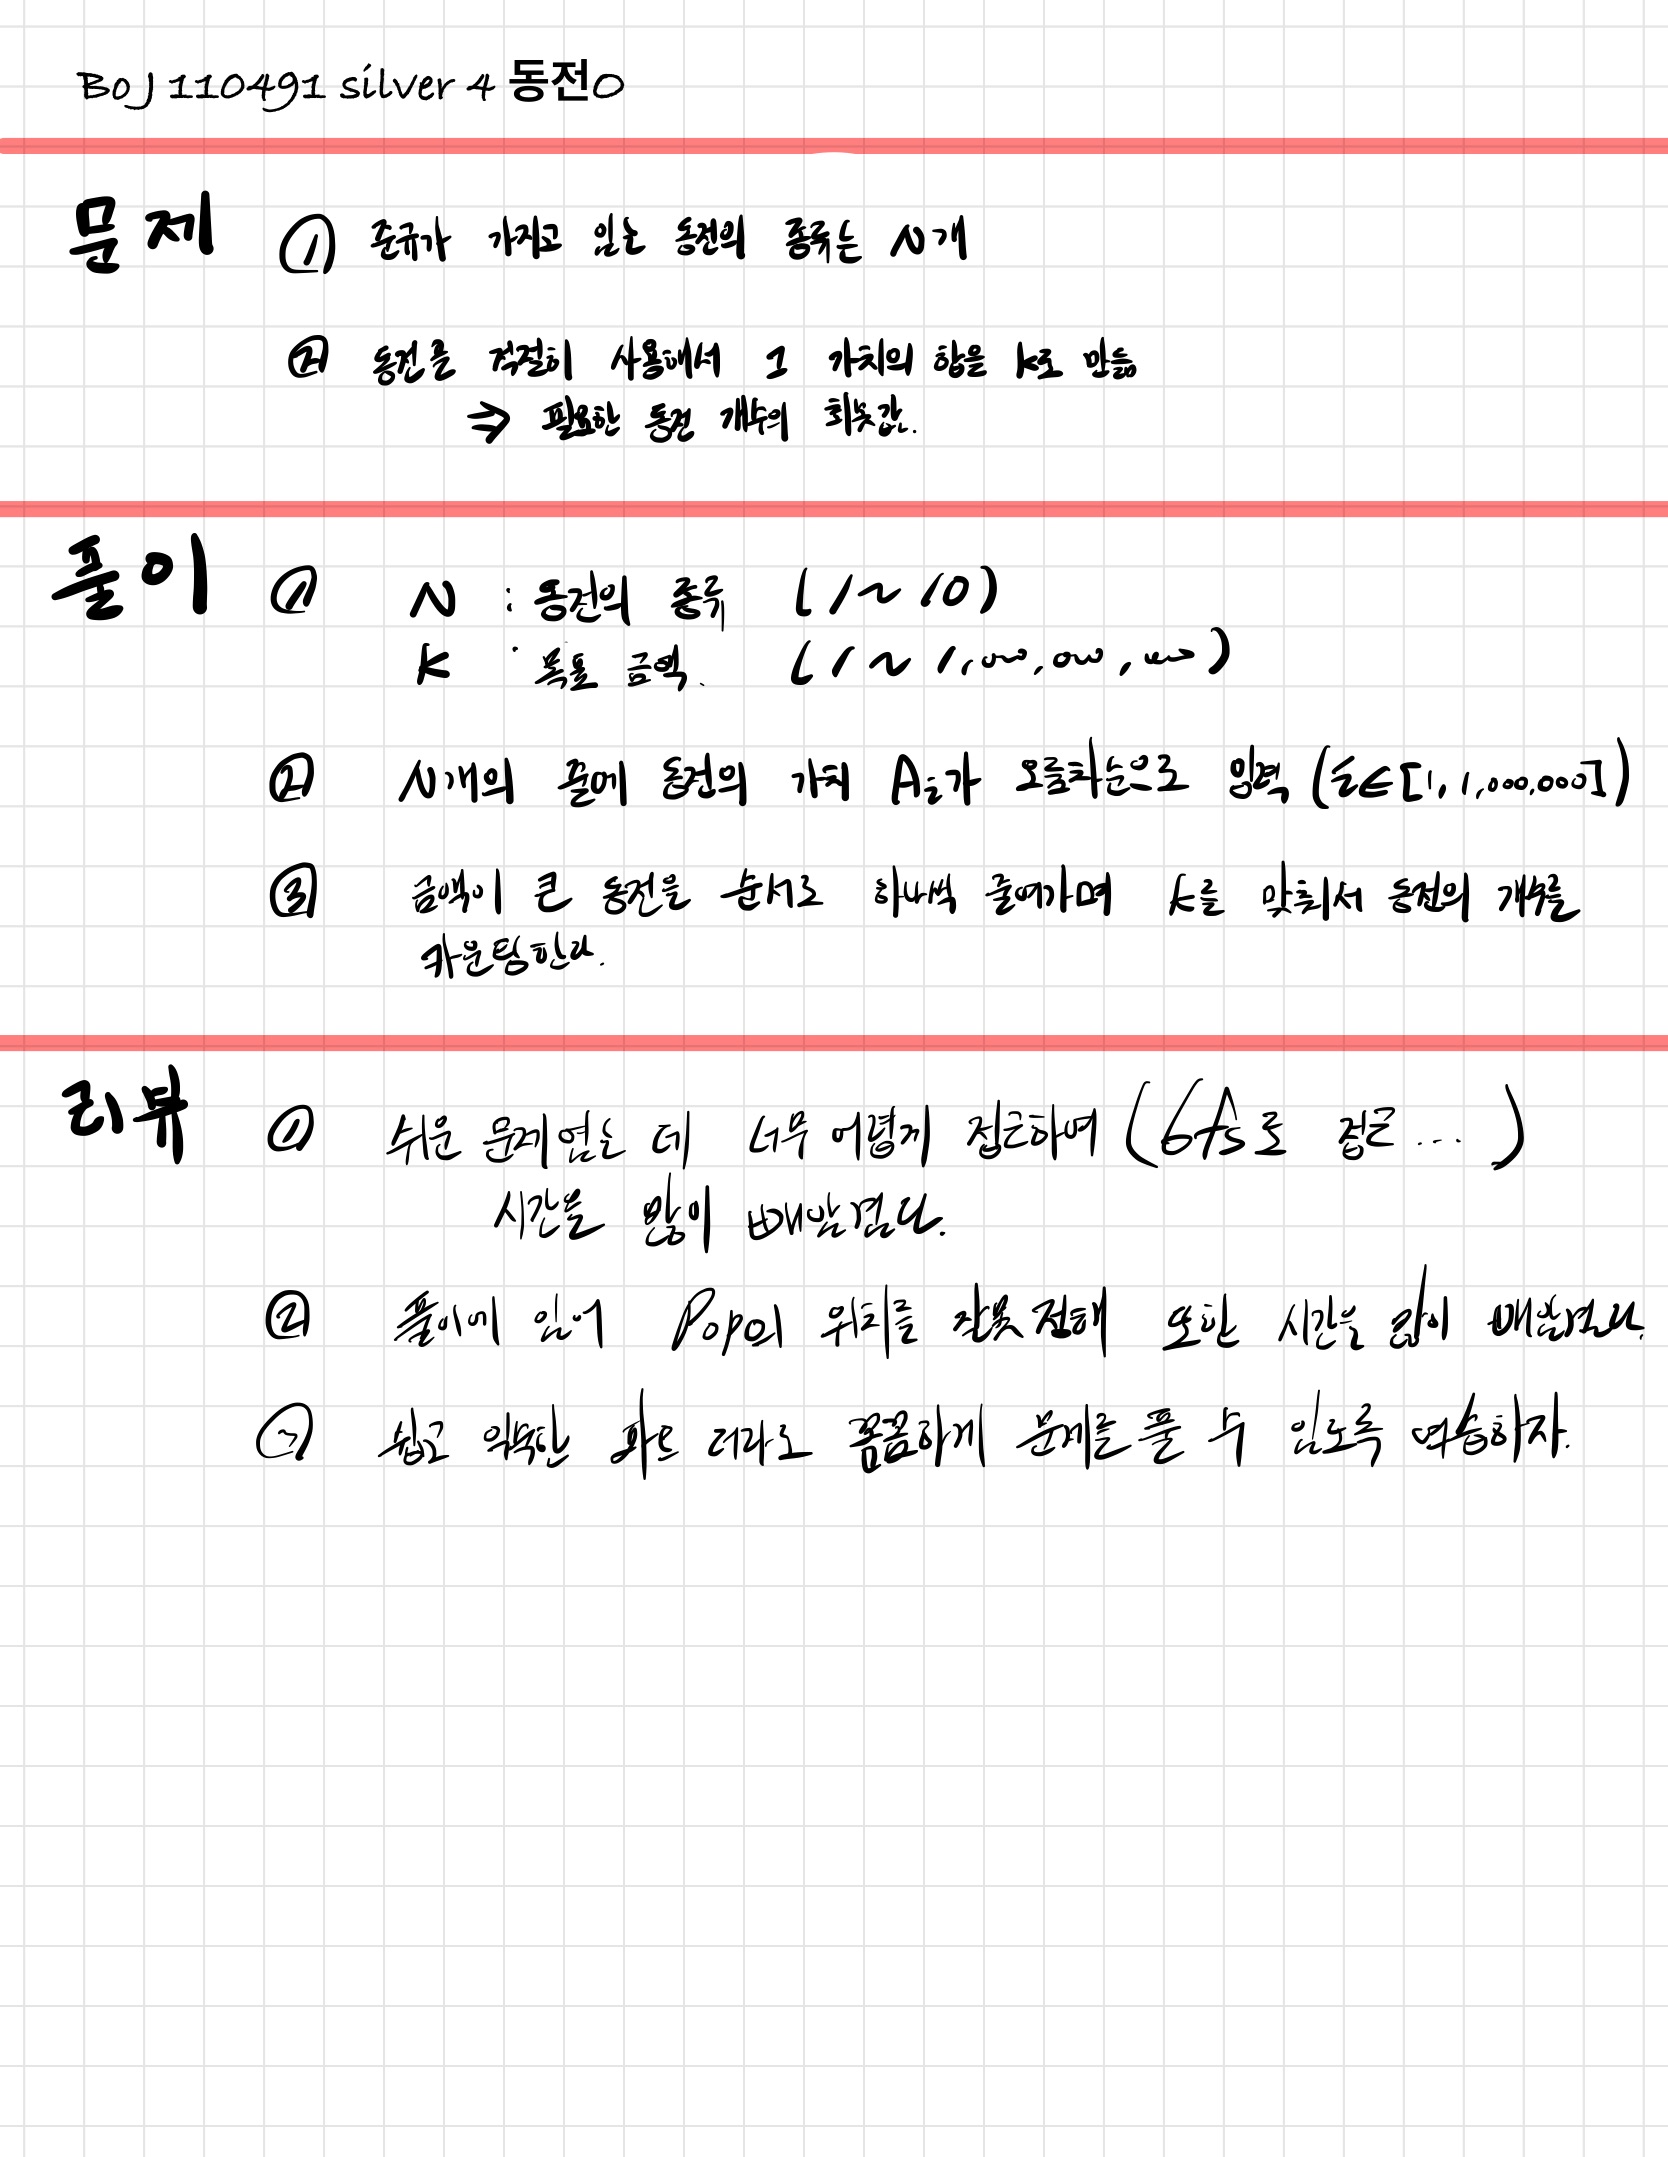 BoJ 110491 silver 4 동전0
문제 ① 준규가 가지고 있는 동전의 종류는 N개
② 동전을 적절히 사용해서 그 가치의 합을 K로 만듦
⇒ 필요한 동전 개수의 최솟값.
풀이 ① N : 동전의 종류 (1~10)
K : 목표 금액. (1~1,000,000,000)
② N개의 줄에 동전의 가치 Aᵢ가 오름차순으로 입력 (i∈[1, 1,000,000])
③ 금액이 큰 동전을 순서로 하나씩 줄여가며 K를 맞춰서 동전의 개수를
카운팅한다.
리뷰 ① 쉬운 문제였는 데 너무 어렵게 접근하여 (bfs로 접근...)
시간을 많이 빼앗겼다.
② 풀이에 있어 Pop의 위치를 잘못 정해 또한 시간을 많이 빼앗겼다.
③ 쉽고 익숙한 파트 더라도 꼼꼼하게 문제를 풀 수 있도록 연습하자.